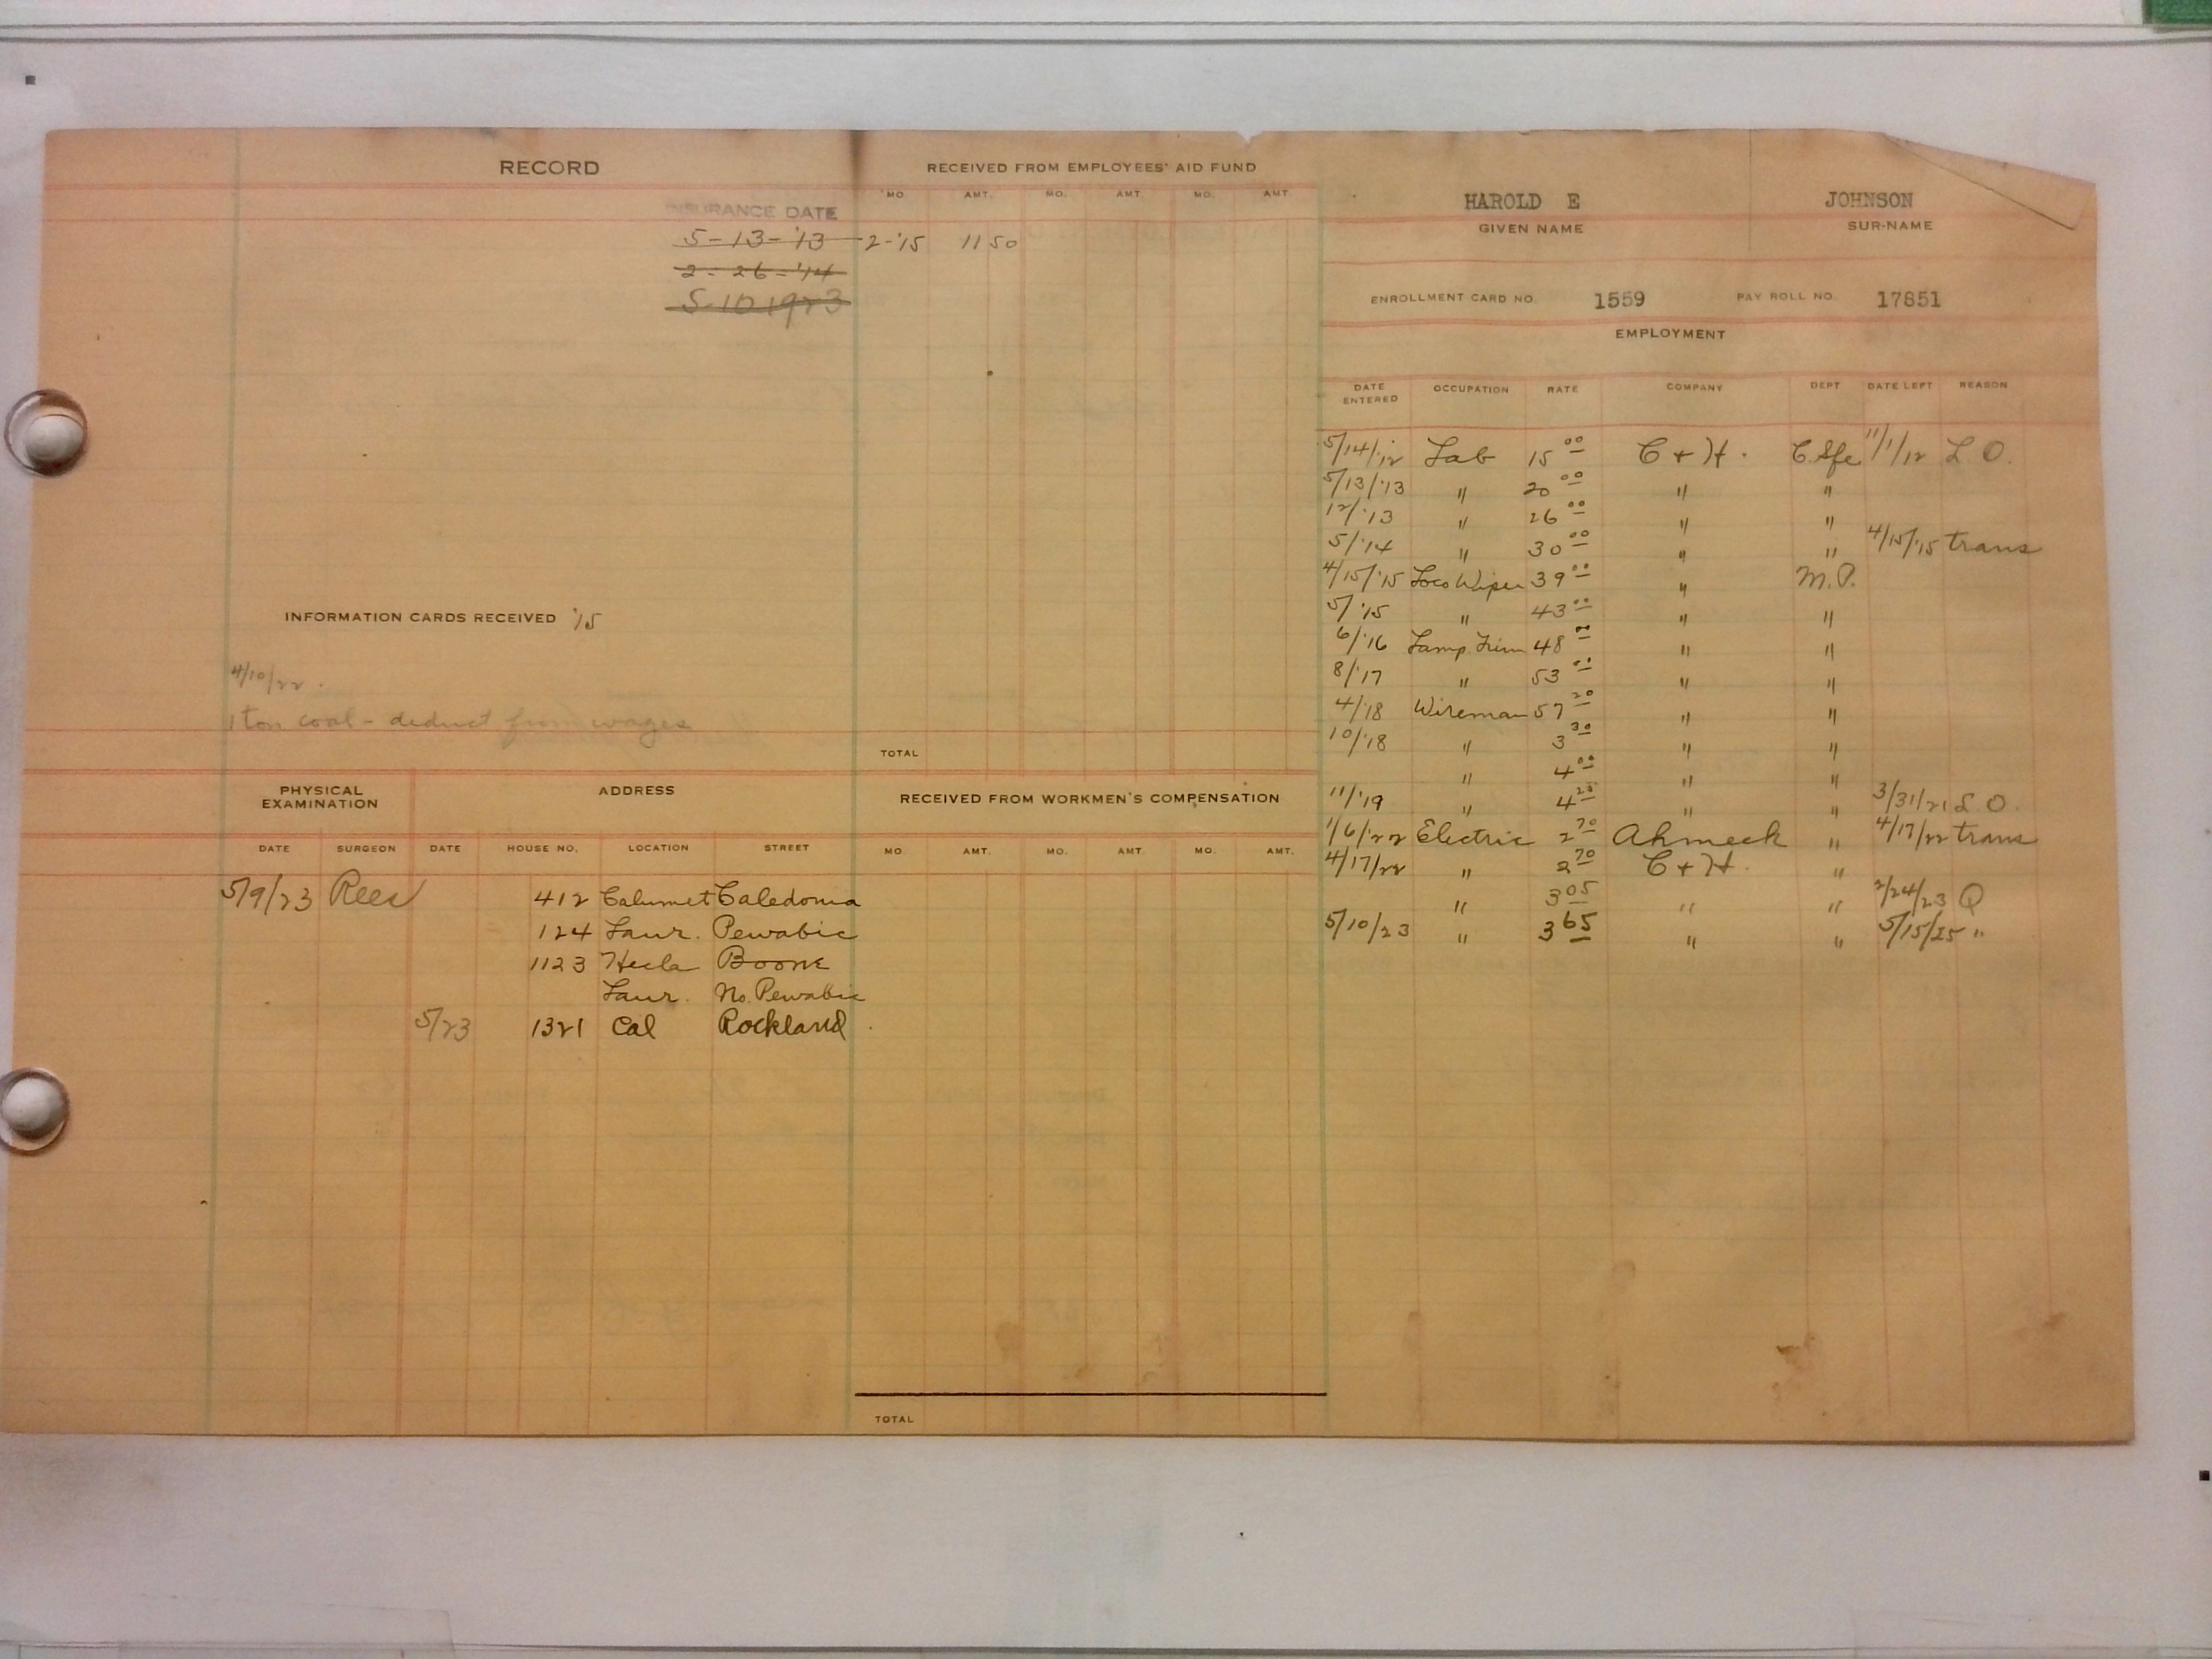 RECORD
INSURANCE DATE
5-13-'13
2-26-'14
5-10 1923
INFORMATION CARDS RECEIVED '15
4/10/22.
1 ton coal - deduct from wages
RECEIVED FROM EMPLOYEES' AID FUND
MO. AMT. MO. AMT. MO. AMT.
2-'15 11 50
TOTAL
PHYSICAL EXAMINATION ADDRESS
DATE SURGEON DATE HOUSE NO. LOCATION STREET
5/9/23 Rees 412 Calumet Caledonia
124 Laur. Pewabic
1123 Hecla Boone
Laur. No. Pewabic
5/23 1321 Cal Rockland
RECEIVED FROM WORKMEN'S COMPENSATION
MO. AMT. MO. AMT. MO. AMT.
TOTAL
HAROLD E JOHNSON
GIVEN NAME SUR-NAME
ENROLLMENT CARD NO. 1559 PAY ROLL NO. 17851
EMPLOYMENT
DATE ENTERED OCCUPATION RATE COMPANY DEPT DATE LEFT REASON
5/14/12 Lab 15 00 C + H. 11/1/12 L. O.
5/13/'13 " 20 00 " "
12/'13 " 26 00 " "
5/'14 " 30 00 " " 4/15/'15 trans
4/15/'15 Loco Wiper 39 00 " M.P.
5/'15 " 43 00 " "
6/'16 Lamp Trim 48 00 " "
8/'17 " 53 00 " "
4/'18 Wireman 57 20 " "
10/'18 " 3 30 " "
" 4 00 " "
11/'19 " 4 25 " " 3/31/21 L. O.
1/6/'22 Electric 2 70 Ahmeek " 4/17/22 trans
4/17/22 " 2 70 C + H. "
" 3 05 " " 2/24/23 Q
5/10/23 " 3 65 " " 5/15/25 "